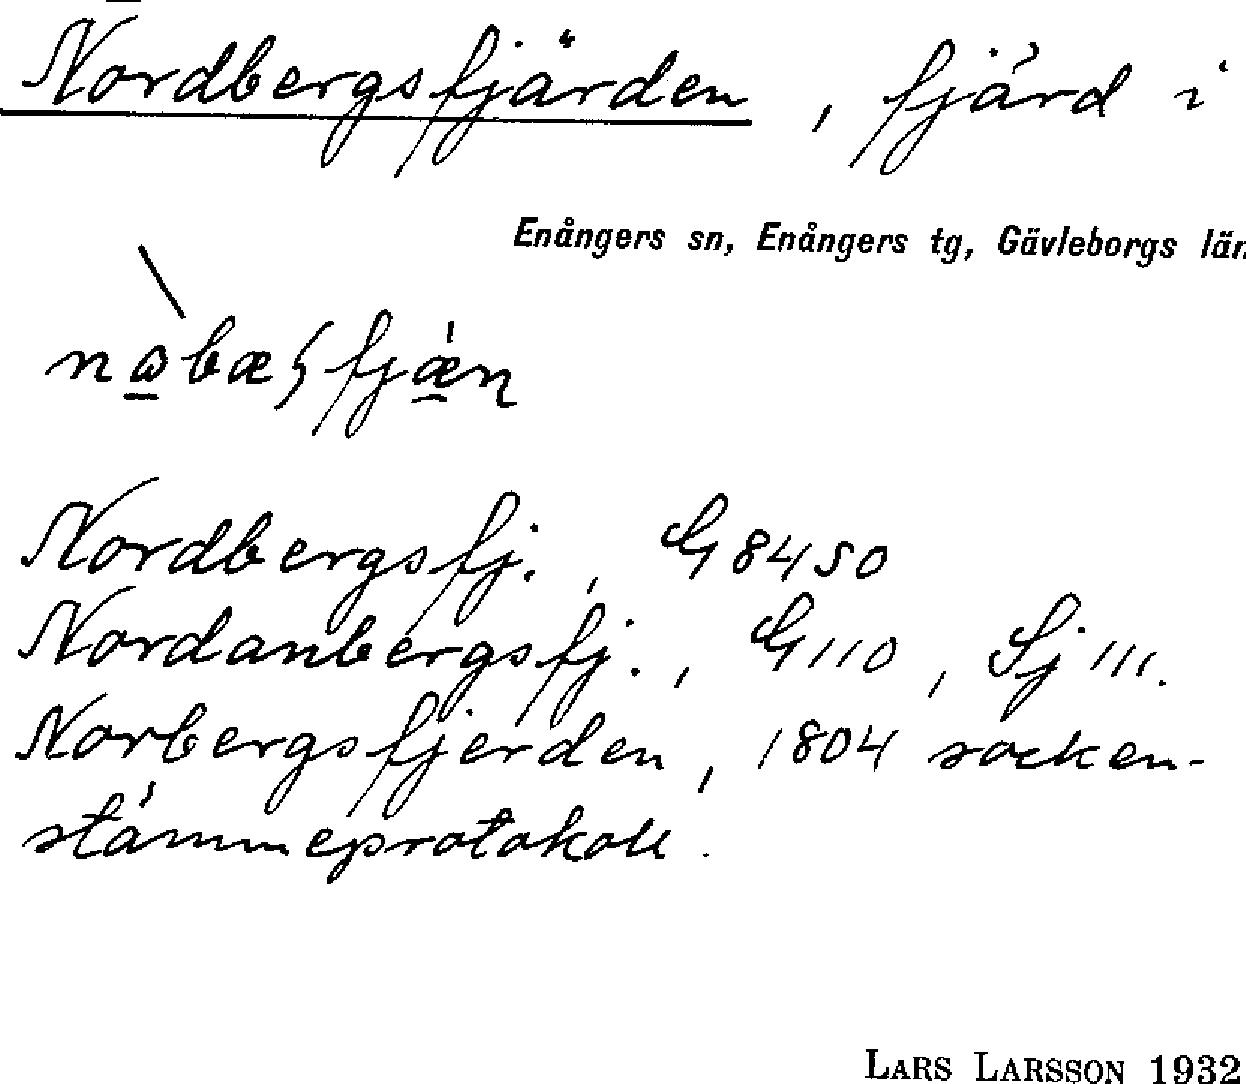 Nordbergsfjärden, fjärd i
Enångers sn, Enångers tg, Gävleborgs län
Nordbergsfj., G 8450
Nordanbergsfj., G 110, Sj 111.
Norbergsfjerden, 1804 socken-
stämmeprotokoll.
LARS LARSSON 1932